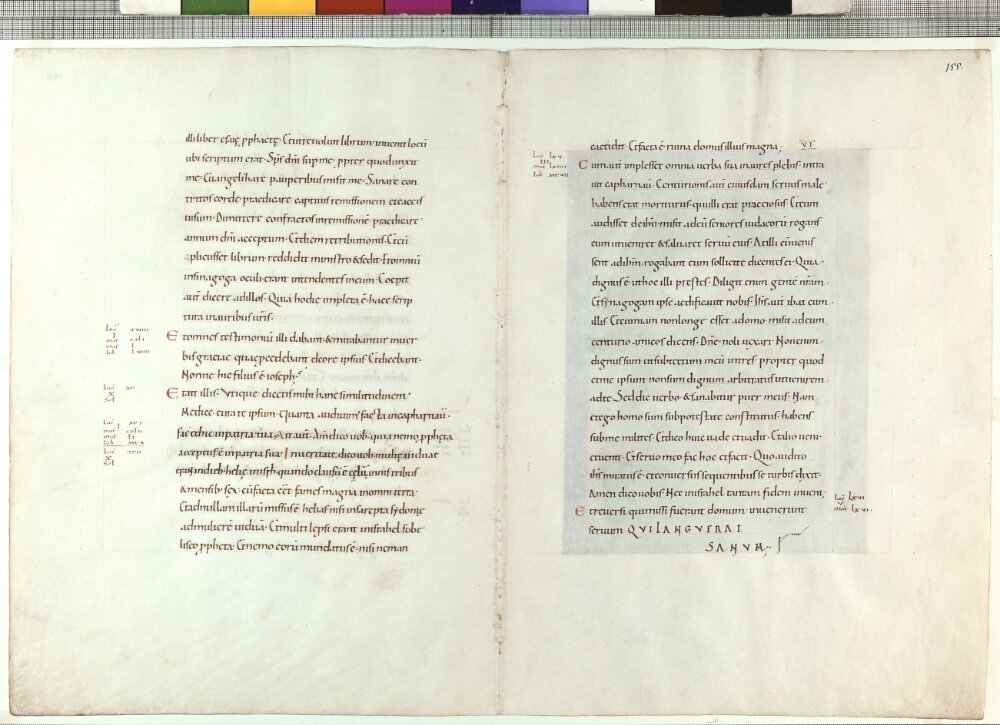 illi liber esaię pphaetę. Et ut revolvit librum. invenit locū
ubi scriptum erat. Sp̄s dn̄i sup me. ppter quod unxit
me. Euangelizare pauperibus misit me. Sanare con
tritos corde. praedicare captiuis remissionem. et caecis
uisum. Dimittere confractos in remissionē. praedicare
annum dn̄i acceptum. Et diem retributionis. Et cū
aplicuisset librum. reddidit ministro & sedit. Et omniū
in sinagoga oculi erant intendentes in eum. Coepit
aut̄ dicere ad illos. Quia hodie impleta ē haec scrip
tura in auribus ur̄is.
Et omnes testimoniū illi dabant. & mirabantur in uer
bis gratiae quae pcedebant de ore ipsius. Et dicebant.
Nonne hic filius ē ioseph.
Et ait illis. Utique dicetis mihi hanc similitudinem.
Medice cura te ipsum. Quanta audiuim' facta in capharnaū.
fac et hic in patria tua. Ait aut̄. Am̄ dico uob. quia nemo ppheta
acceptus ē in patria sua. In ueritate dico uob. multę uiduae
erant in dieb. helię in isrl. quando clausū ē cęlū annis tribus
& mensib. sex. cū facta eēt fames magna in omni terra.
Et ad nullam illarū missus ē helias. nisi in sarepta sydonie
ad mulierē uiduā. Et multi leprosi erant in israhel sub he
liseo ppheta. Et nemo eorū mundatus ē. nisi neman
155.
caecidit. Et facta ē ruina domus illius magna; VI
Cum aut̄ implesset omnia uerba sua in aures plebis. intra
uit capharnaū. Centurionis aut̄ cuiusdam seruus male
habens erat moriturus. qui illi erat praeciosus. Et cum
audisset de ih̄u. misit ad eū seniores iudaeorū. rogans
eum ut ueniret & saluaret seruū eius. At illi cū uenis
sent ad ih̄m. rogabant eum sollicite dicentes ei. Quia
dignus ē ut hoc illi prestes. Diligit enim gentē nr̄am.
Et synagogam ipse aedificauit nobis. Ih̄s aut̄ ibat cum
illis. Et cum iam non longe esset a domo. misit ad eum
centurio amicos dicens. Dn̄e noli uexari. Non enim
dignus sum ut sub tectum meū intres. propter quod
et me ipsum non sum dignum arbitratus ut uenirem
ad te. Sed dic uerbo & sanabitur puer meus. Nam
et ego homo sum sub potestate constitutus. habens
sub me milites. Et dico huic uade et uadit. Et alio ueni
et uenit. Et seruo meo fac hoc et facit. Quo audito
ih̄s miratus ē. et conuersus sequentibus se turbis dixit.
Amen dico uobis. Nec in israhel tantam fidem inueni.
Et reuersi qui missi fuerant domum. inuenerunt
seruum QUI LANGUERAT
SANUM.